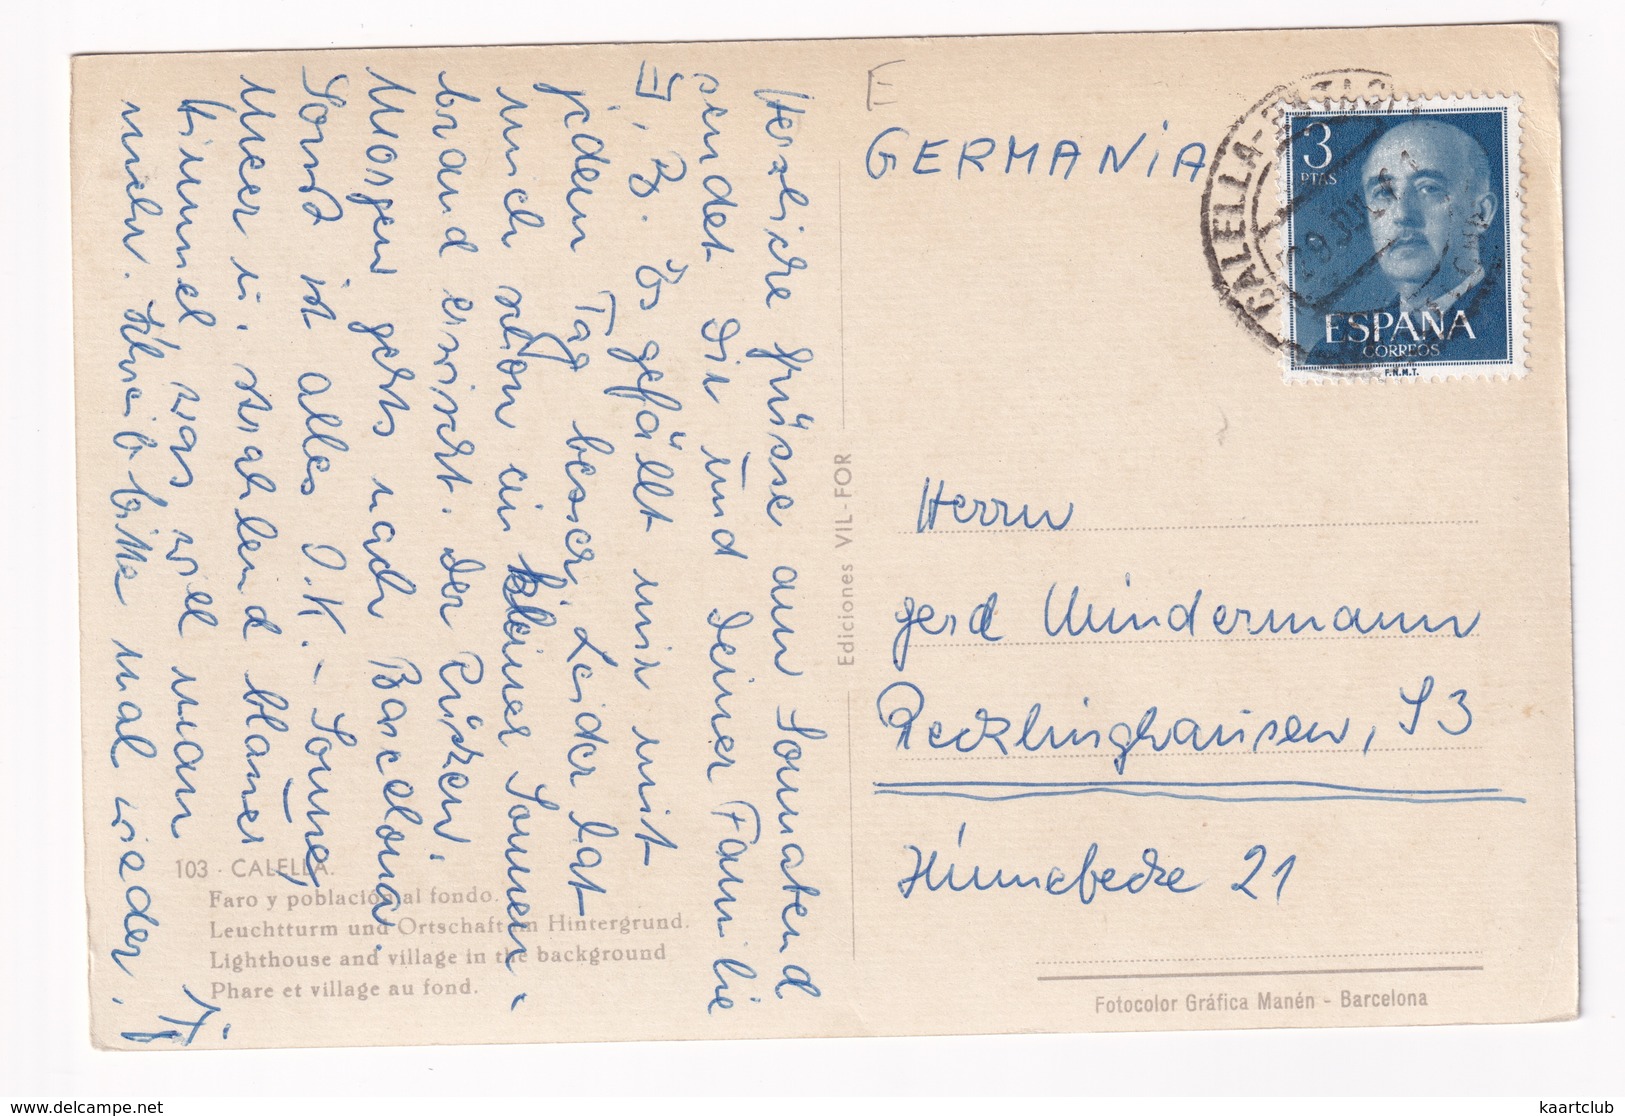 Herzliche Grüsse am Sonnabend
sendet Dir und Deiner Familie
B. Es gefällt mir mit
jedem Tag besser. Leider hat
mich schon ein kleiner Sonnen-
brand erwischt. Der Rücken.
Morgen gehts nach Barcelona.
Sonst ist alles O.K. - Sonne,
Meer u. strahlend blauer
Himmel was will man
mehr. Schreib bitte mal wieder.
GERMANIA
CALELLA
3
PTAS
ESPAÑA
CORREOS
F.N.M.T.
Herrn
Gerd Mindermann
Recklinghausen, S3
21
Ediciones VIL-FOR
103 · CALELLA.
Faro y población al fondo.
Leuchtturm und Ortschaft im Hintergrund.
Lighthouse and village in the background
Phare et village au fond.
Fotocolor Gráfica Manén - Barcelona
delcampe.net
kaartclub